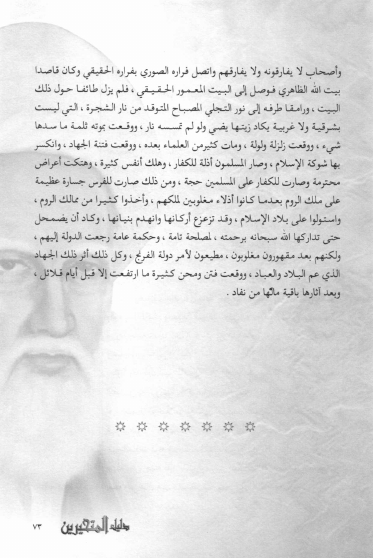 وأصحاب لا يفارقونه ولا يفارقهم واتصل فراره الصوري بفراره الحقيقي وكان قاصدا
بيت الله الظاهري فوصل إلى البيت المعمور الحقيقي ، فلم يزل طائفا حول ذلك
البيت ، ورامقا طرفه إلى نور التجلي المصباح المتوقد من نار الشجرة ، التي ليست
بشرقية ولا غربية يكاد زيتها يضي ولو لم تمسسه نار ، ووقعت بموته ثلمة ما سدها
شيء ، ووقعت زلزلة ولولة ، ومات كثير من العلماء بعده ، ووقعت فتنة الجهاد ، وانكسر
بها شوكة الإسلام ، وصار المسلمون أذلة للكفار ، وهلك أنفس كثيرة ، وهتكت أعراض
محترمة وصارت للكفار على المسلمين حجة ، ومن ذلك صارت للفرس جسارة عظيمة
على ملك الروم بعدما كانوا أذلاء مغلوبين لملكهم ، وأخذوا كثيرا من ممالك الروم ،
واستولوا على بلاد الإسلام ، وقد تزعزع أركانها وانهدم بنيانها ، وكاد أن يضمحل
حتى تداركها الله سبحانه برحمته ، لمصلحة تامة ، وحكمة عامة رجعت الدولة إليهم ،
ولكنهم بعد مقهورون مغلوبون ، مطيعون لأمر دولة الفرنج ، وكل ذلك أثر ذلك الجهاد
الذي عم البلاد والعباد ، ووقعت فتن ومحن كثيرة ما ارتفعت إلا قبل أيام قلائل ،
وبعد آثارها باقية مالها من نفاد .
دليل المتحيرين
٧٣